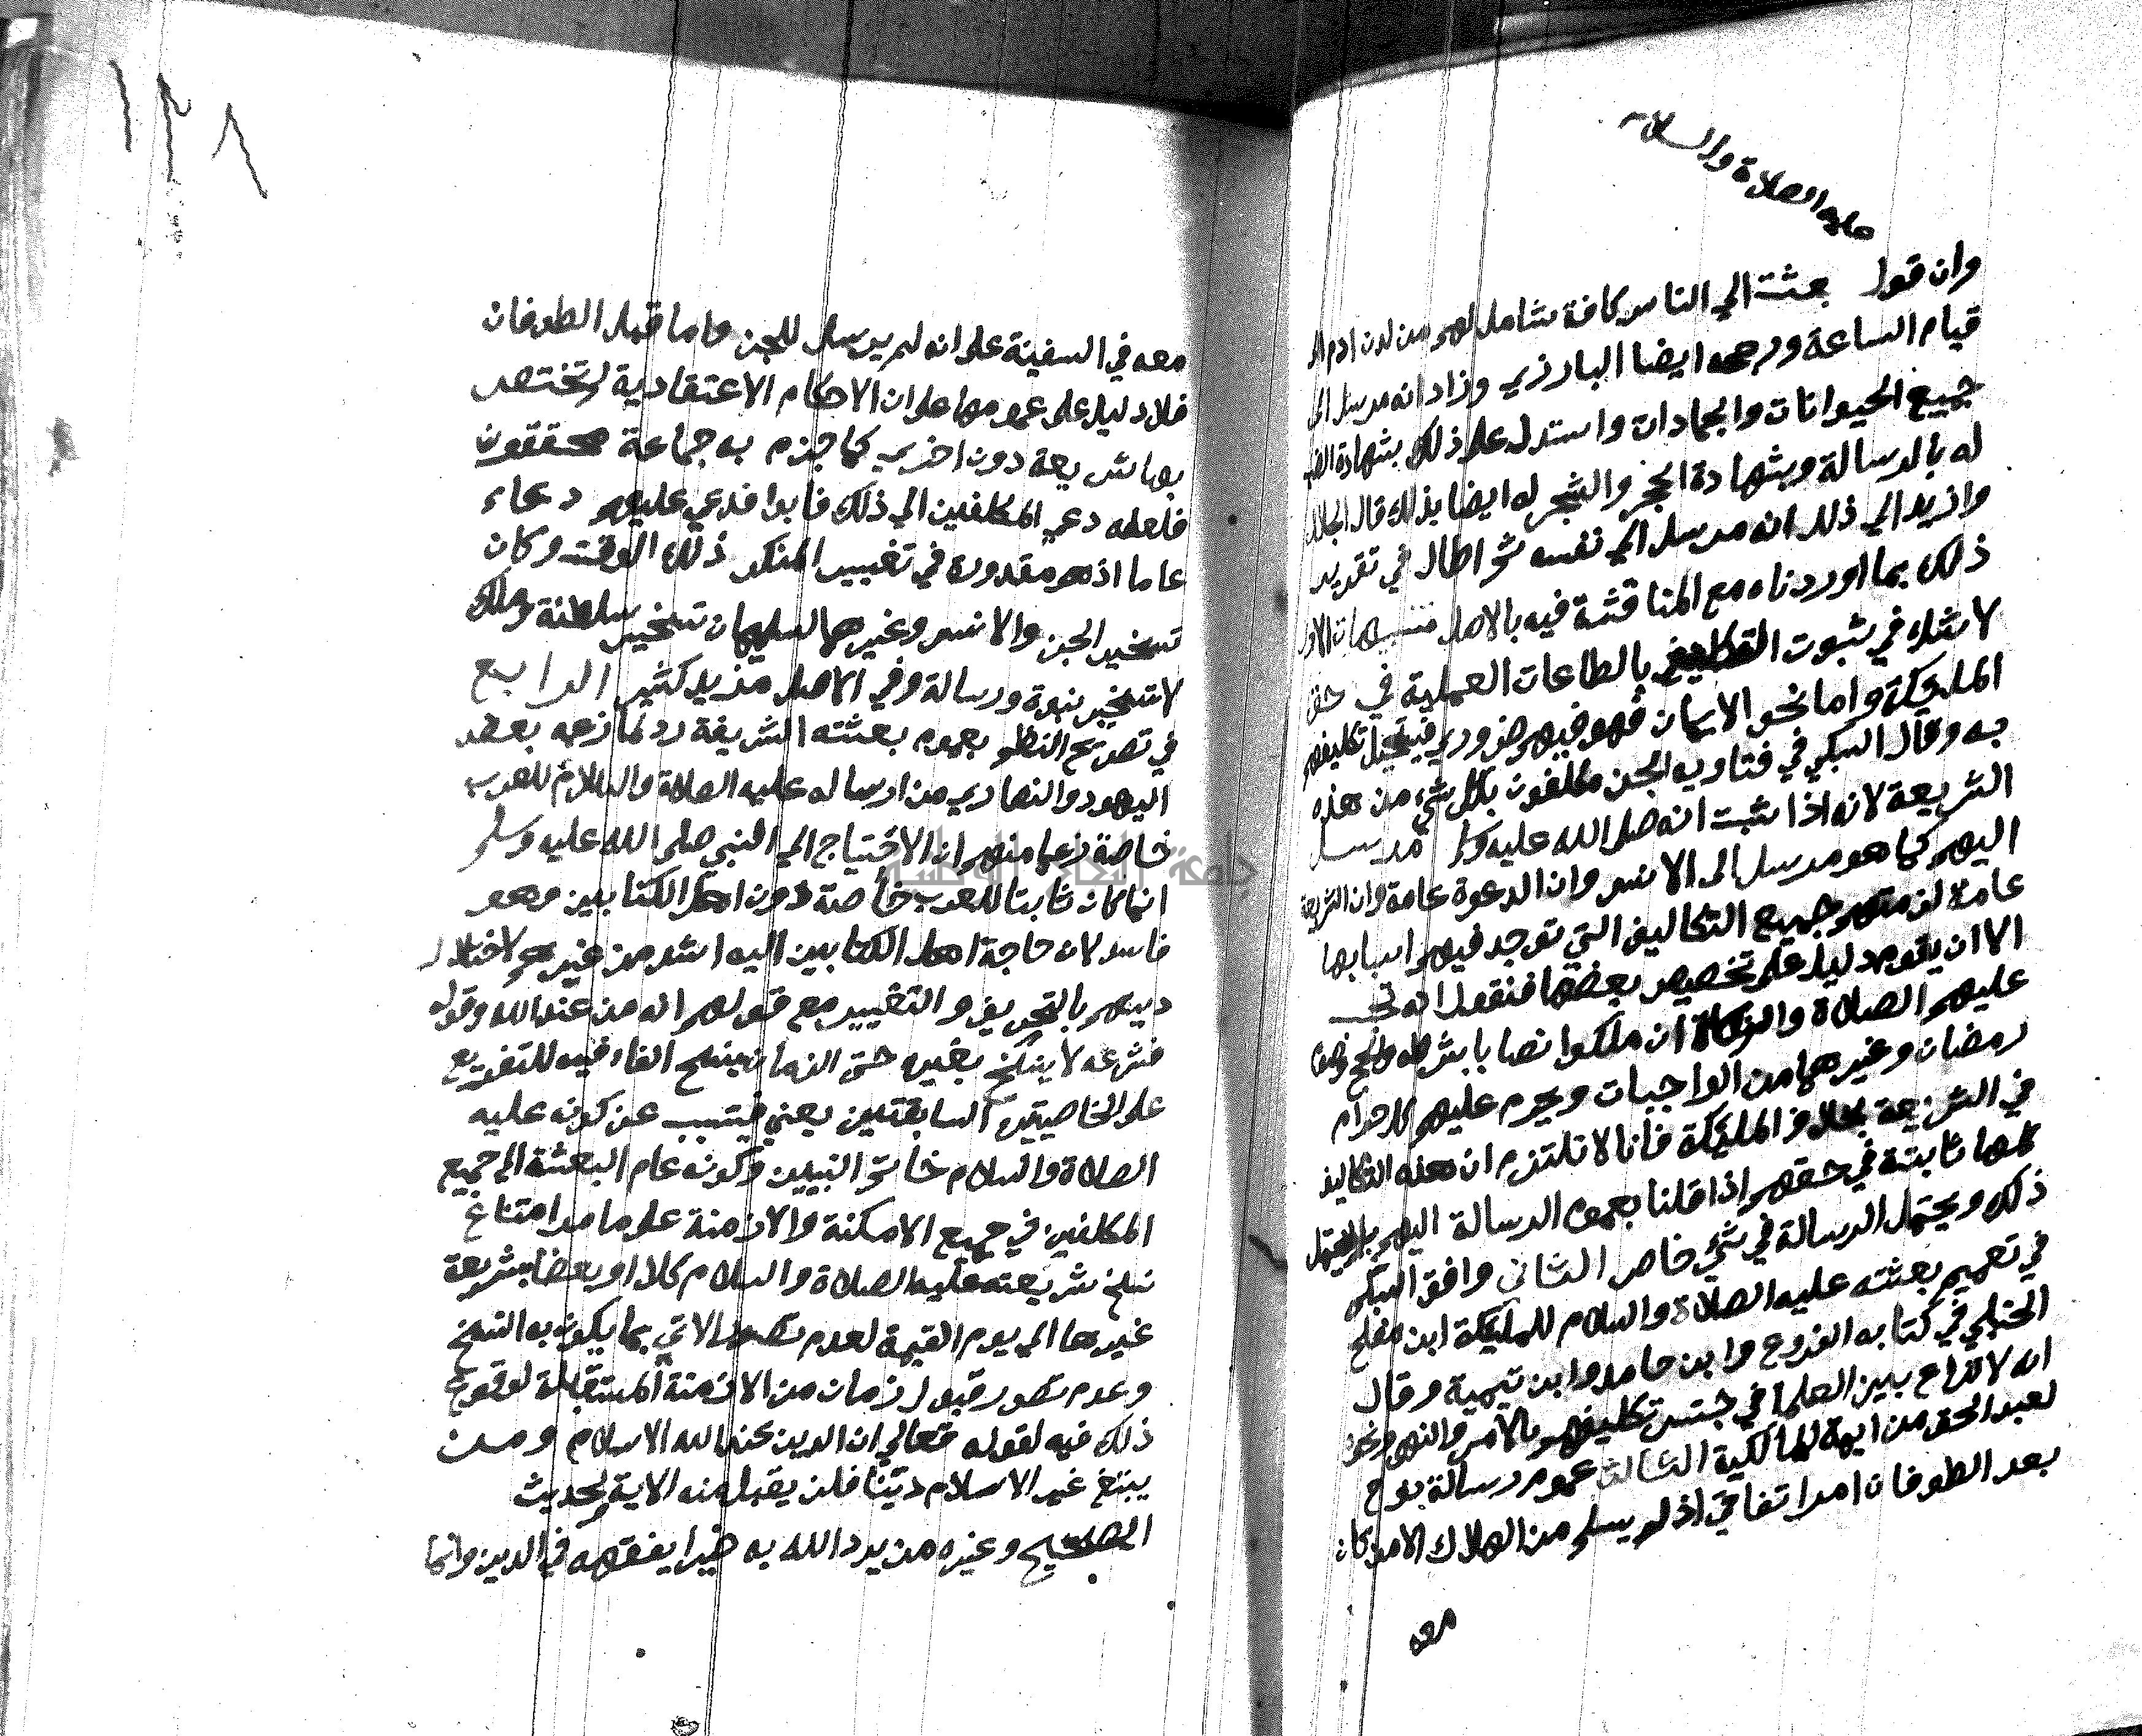 عليه الصلاة والسلام
وان قول بعثت الي الناس كافة شامل لهم من لدن ادم الى
قيام الساعة ورجحه ايضا البارزي وزاد انه مرسل الى
جميع الحيوانات والجمادات واستدل على ذلك بشهادة الضب
له بالرسالة وبشهادة الحجر والشجر له ايضا بذلك قال الجلال
وازيد الي ذلك انه مرسل الي نفسه ثم اطال في تقرير
ذلك بما اوردناه مع المناقشة فيه بالاصل تنبيهات الاول
لا شك في ثبوت التكليف بالطاعات العملية في حق
المليكة واما نحو الايمان فهو فيهم ضروري فيستحيل تكليفهم
به وقال السبكي في فتاويه الجن مكلفون بكل شيء من هذه
الشريعة لانه اذا ثبت انه صلى الله عليه وسلم مرسل
اليهم كما هو مرسل الى الانس وان الدعوة عامة وان الشريعة
عامة لزمتهم جميع التكاليف التي توجد فيهم اسبابها
الا ان يقوم دليل على تخصيص بعضها فنقول انه تجب
عليهم الصلاة والزكاة ان ملكوا نصابا بشرطه والحج وصوم
رمضان وغيرهما من الواجبات ويحرم عليهم كل حرام
في الشريعة بخلاف المليكة فانا لا نلتزم ان هذه التكاليف
كلها ثابتة في حقهم اذا قلنا بعموم الرسالة اليهم بل يحتمل
ذلك ويحتمل الرسالة في شيء خاص الثاني وافق السبكي
في تعميم بعثته عليه الصلاة والسلام للمليكة ابن مفلح
الحنبلي في كتابه الفروع وابن حامد وابن تيمية وقال
انه لا نزاع بين العلما في جنس تكليفهم بالامر والنهي ونحوه
لعبد الحق من ايمة المالكية الثالث عموم رسالة نوح
بعد الطوفان امر اتفاقي اذ لم يسلم من الهلاك الا من كان
معه
١٣٨
معه في السفينة على انه لم يرسل للجن واما قبل الطوفان
فلا دليل على عمومها على ان الاحكام الاعتقادية لم تختص
بها شريعة دون اخرى كما جزم به جماعة محققون
فلعله دعي المكلفين الي ذلك فابوا فدعي عليهم دعاء
عاما اذ هو مقدوره في تغيير المنكر ذلك الوقت وكان
تسخير الجن والانس وغيرهما لسليمان تسخير سلطنة وملك
لا تسخير نبوة ورسالة وفي الاصل مزيد كثير الرابع
في تصريح النظم بعموم بعثته الشريفة رد لما زعمه بعض
اليهود والنصاري من ارساله عليه الصلاة والسلام للعرب
خاصة زعما منهم ان الاحتياج الي النبي صلى الله عليه وسلم
انما كان ثابتا للعرب خاصة دون اهل الكتابين وهو
فاسد لان حاجة اهل الكتابين اليه اشد من غيرهم لاختلال
دينهم بالتحريف والتغيير مع قولهم انه من عند الله وقوله
فشرعه لا ينسخ بغيره حتى الزمان ينسخ الفاء فيه للتفريع
على الخاصيتين السابقتين يعني فيتسبب عن كونه عليه
الصلاة والسلام خاتم النبيين وكونه عام البعثة الى جميع
المكلفين في جميع الامكنة والازمنة على ما مر امتناع
نسخ شريعته عليه الصلاة والسلام كلا او بعضا بشريعة
غيرها الي يوم القيمة لعدم تصور الاتي بما يكون به النسخ
وعدم تصور قبول زمان من الازمنة المستقبلة لوقوع
ذلك فيه لقوله تعالي ان الدين عند الله الاسلام ومن
يبتغ غير الاسلام دينا فلن يقبل منه الاية ولحديث
الصحيح وغيره من يرد الله به خيرا يفقهه في الدين وانما
جامعة النجاح الوطنية